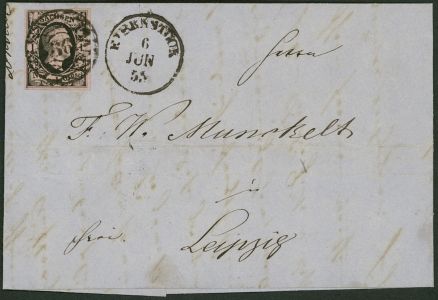 EIBENSTOCK
6
JUN
55
Herrn
F. W. Munckelt
in
Leipzig
frei.